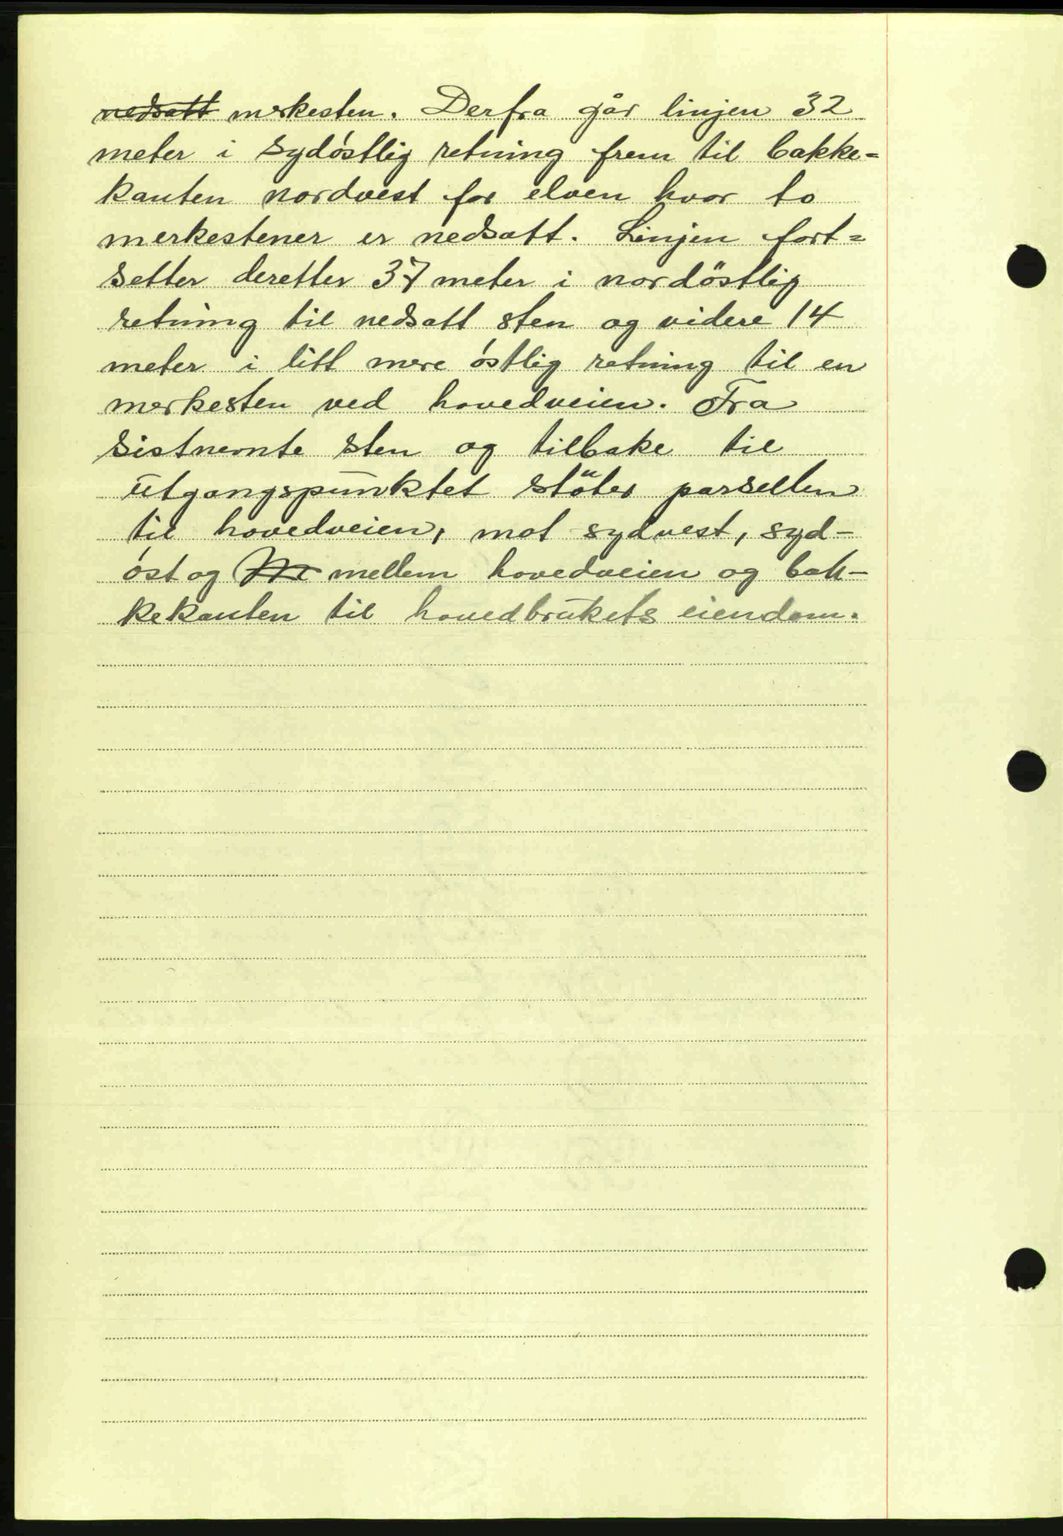 nedsatt merkesten. Derfra går linjen 32
meter i sydøstlig retning frem til bakke=
kanten nordvest for elven hvor to
merkestener er nedsatt. Linjen fort=
setter deretter 37 meter i nordöstlig
retning til nedsatt sten og videre 14
meter i litt mere østlig retning til en
merkesten ved hovedveien. Fra
sistnevnte sten og tilbake til
utgangspunktet stöter parsellen
til hovedveien, mot sydvest, syd-
øst og mellem hovedveien og bak-
kekanten til hovedbrukets eiendom.